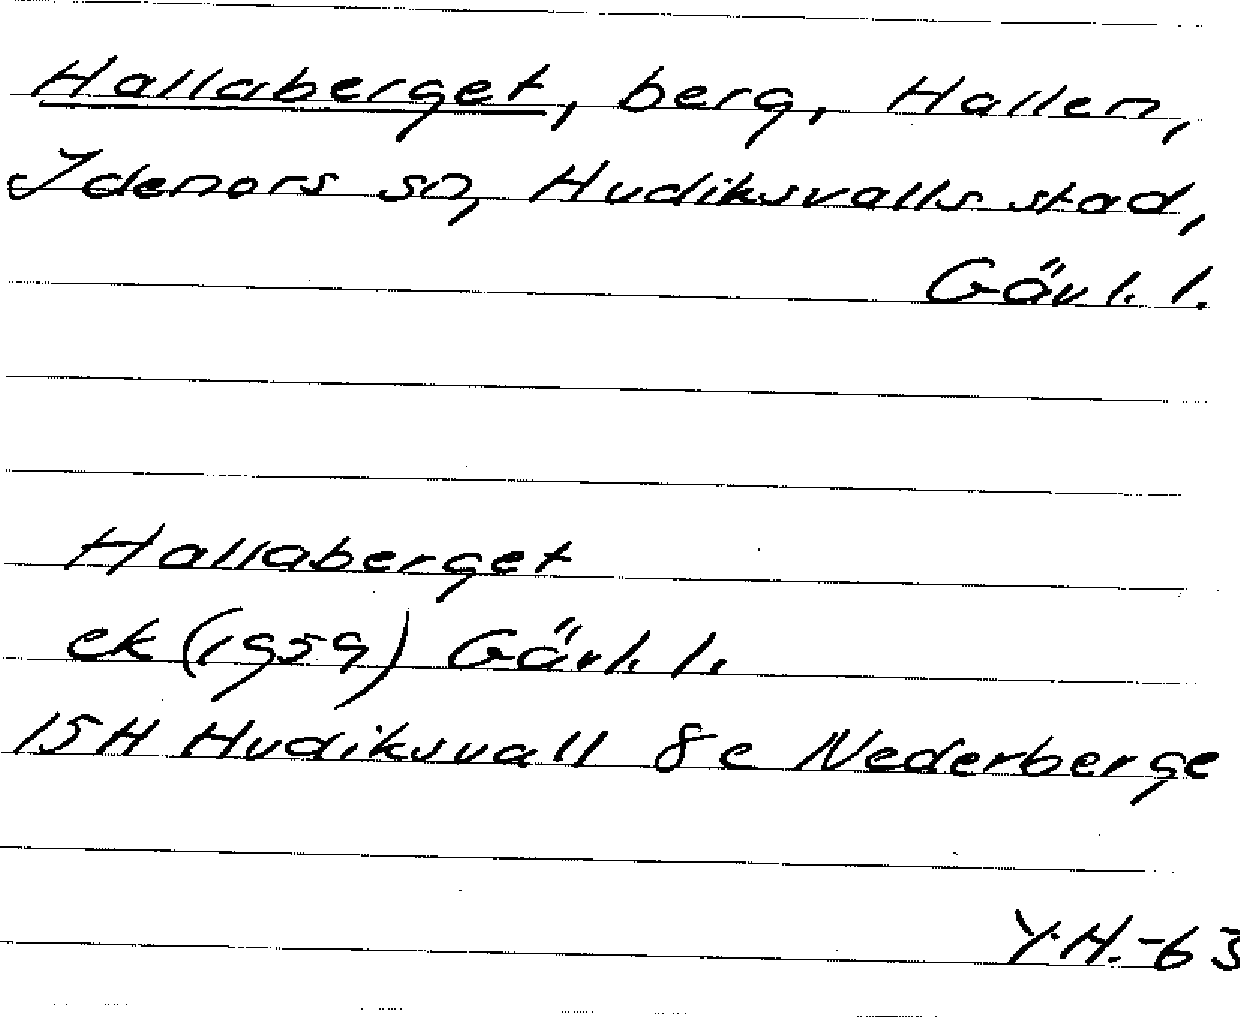 Hallaberget, berg, Hallen,
Idenors sn, Hudiksvalls stad,
Gävl. l.
Hallaberget
ek (1959) Gävl. l.
15H Hudiksvall 8e Nederberge
Y.H.-63